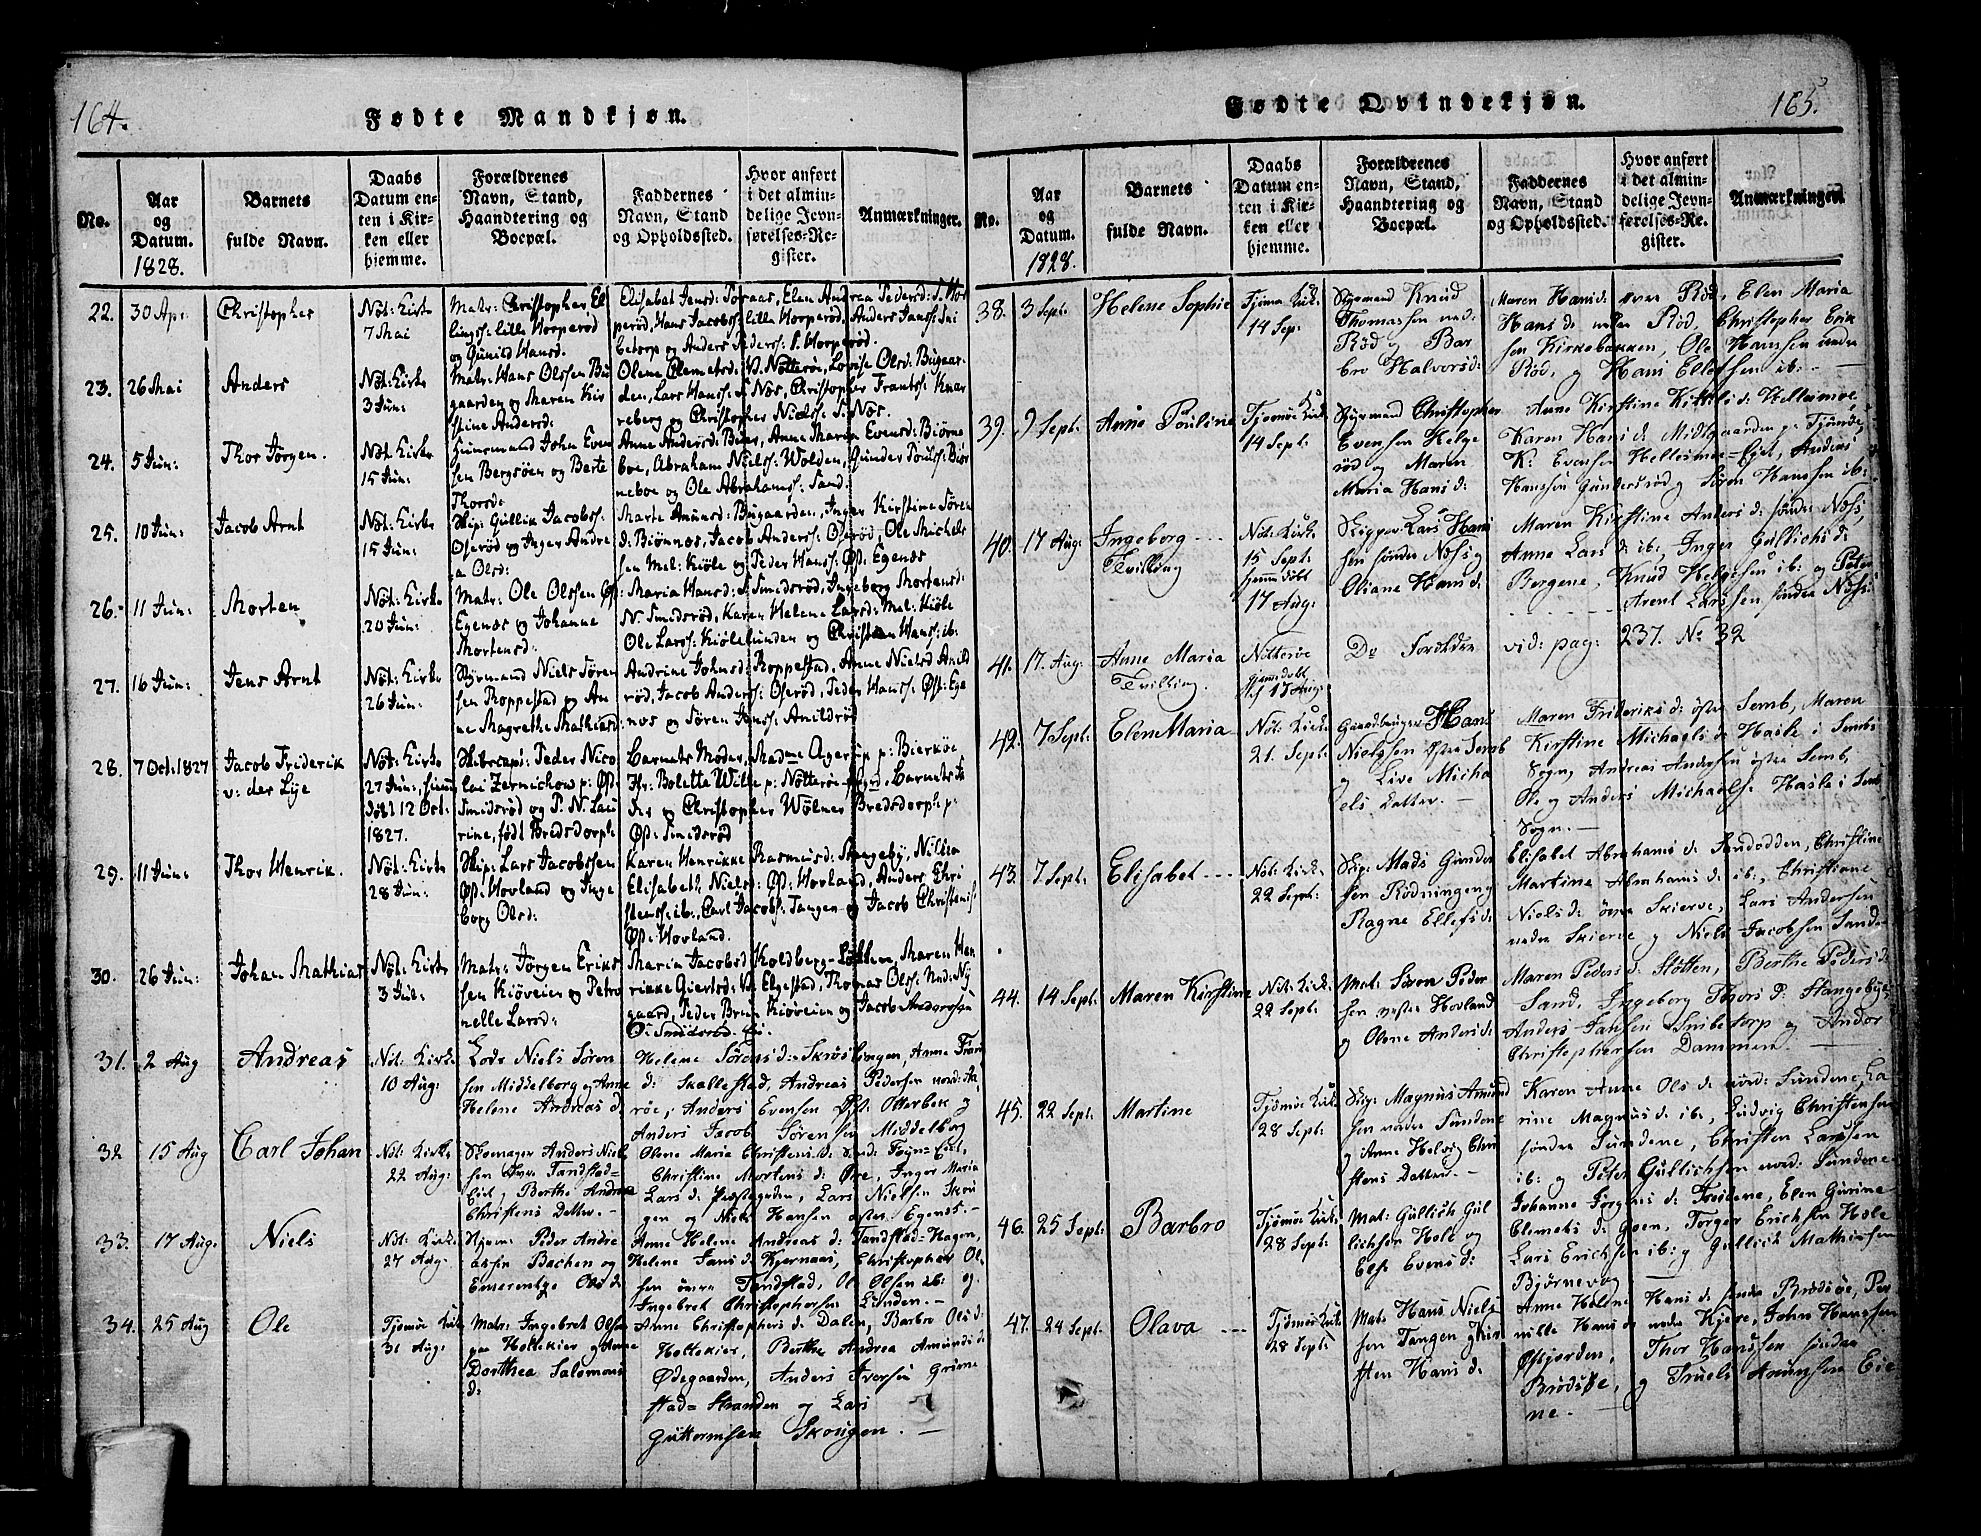 164.
Fødte Mandkjøn.
No.
Aar
og
Datum.
1828.
Barnets
fulde Navn.
Daabs
Datum en-
ten i Kir-
ken eller
hjemme.
Forældrenes
Navn, Stand,
Haandtering og
Boepæl.
Faddernes
Navn, Stand
og Opholdssted.
Hvor anført
i det almin-
delige Jevn-
førelses-Re-
gister.
Anmærkninger.
22.
30 Apr:
Christopher
Nøt: Kirke
7 Mai
Matr: Christopher El
lingss: lille Horperød
og Gunild Hansd.
Elisabet Jensd: Toraas, Elen Andrea Pedersd: S. Hor
perød, Hans Jacobss: lille Horperød, Anders Janss: Sni
betorp og Anders Pederss: S. Horperød.
23.
26 Mai
Anders
Nøt: Kirke
3 Jun:
Matr: Hans Olssen Bu
gaarden og Maren Kir
stine Andersd:
Olene Clemetsd: V. Nøtterø, Lovise Olsd: Bugaar
den, Lars Hanss: S. Næs, Christopher Frantss: Knar
reberg og Christopher Nielss: S. Næs.
24.
5 Jun:
Thor Jørgen.
Nøt: Kirke
15 Jun:
Huusmand Johan Even
sen Bergsøen og Berte
Thorsd:
Anne Andersd: Buer, Anne Maria Evensd: Biørne
boe, Abraham Nielss: Wolden, Gunder Poulss: Biør
neboe og Ole Abrahamss: Sand.
25.
10 Jun:
Jacob Arnt
Nøt: Kirke
15 Jun:
Skip: Gullik Jacobss:
Oserød og Inger Andre
a Olsd:
Marte Amunsd: Bugaarden, Inger Kirstine Søren
d: Biønnes, Jacob Anderss: Oserød, Ole Michels
sen Mel: Kiøle og Peder Hanss: Øst: Egenæs
26.
11 Jun:
Morten
Nøt: Kirke
20 Jun:
Matr: Ole Olssen Øst:
Egenæs og Johanne
Mortensd:
Maria Hansd: S. Smidsrød, Ingeborg Mortensd:
N. Smidsrød, Karen Helene Larsd: Mel: Kiøle
Ole Larss: Kiølelunden og Christian Hanss: ib:
27.
16 Jun:
Jens Arnt
Nøt: Kirke
26 Jun:
Styrmand Niels Søren
sen Roppestad og An
ne Magrethe Mathiesd:
Andrine Johnsd: Roppestad, Anne Nielsd Anild
rød, Jacob Anderss: Oserød, Peder Hanss: Øst: Ege
nes og Søren Janss: Anildrød
28.
7 Oct: 1827
Jacob Friderik
v: der Lije
Nøt: Kirke
27 Jun:, hiem
døbt 12 Oct:
1827.
Skibscapt: Peder Nico
lai Zernichow p: Øst:
Smidsrød og P. N. Lau
rine, født Bredsdorph:
Barnets Moder, Madme Agerup p: Bierkøe
Fr: Bolette Wille p: Nøtterøe Prgrd, Barnets Fa
der og Christopher Wølner Bredsdorph: p:
Øst: Smidsrød
29.
11 Jun:
Thor Henrik.
Nøt: Kirke
28 Jun:
Skip: Lars Jacobssen
Øst: Hovland og Inge
borg Olsd:
Karen Henrikke Rasmusd: Stangeby, Nilsea
Elisabeth Nielsd: Øst: Hovland, Anders Chri
stenss: ib:, Carl Jacobs: Tangen og Jacob Christenss:
Øst: Hovland.
30.
26 Jun:
Johan Mathias
Nøt: Kirke
3 Jul:
Matr: Jørgen Eriks
sen Kiøveien og Petro
nelle Larsd:
Maria Jacobsd Holdberg-Løkken, Maren Hen
rikke Giertsd: V. Elgestad, Thomas Olss: Ned: Nij
gaard, Peder Bruun Kiøveien og Jacob Anderssen
Ø: Smidsrød.
31.
2 Aug
Andreas
Nöt: Kirke
10 Aug:
Lods Niels Sören
sen Middelborg og Anne
Helene Andreas d:
Helene Sörens d: Skrøslingen, Anne Fran
d: Skallestad, Andreas Pedersen nord: A
röe, Anders Evensen Øst: Otterbek og
Anders Jacob Sörensen Middelborg
32
15 Aug
Carl Johan
Nöt: Kirke
22 Aug:
Skomager Anders Niel
sen Øvre Tandstad-
Eiet, Berthe Andrea
Christens Datter. -
Olene Maria Christens d:
Christine Mortens d: Øre, Inger Maria
Lars d: Præstegaden, Lars Nielsen Skou
gen og Niels Hansen østre Egenes. -
33.
17 Aug.
Niels
Nöt: Kirke
27 Aug:
Peder Andre
assen Bachen og
Emerentze Ols d:
Anne Helene Andreas d: Tandstad-Hagen,
Helene Jans d: Kjernaas, Christopher Ol
sen övre Tandstad, Ole Olsen ib: og
Ingebret Christophersen Lunden. -
34.
25 Aug
Ole
Tjömöe Kirke
31 Aug:
Matr: Ingebret Olsen
paa Holtekier og Anne
Dorthea Salomons
d:
Anne Christophers d: Dalen, Barbro Ols d:
Holtekier, Berthe Andrea Amunds d:
Ødegaarden, Anders Iversen Grime
stad-Stranden og Lars
Guttormsen Skougen. -
165.
Fødte Qvindekjøn.
No.
Aar
og
Datum.
1828.
Barnets
fulde Navn.
Daabs
Datum en-
ten i Kir-
ken eller
hjemme.
Forældrenes
Navn, Stand,
Haandtering og
Boepæl.
Faddernes
Navn, Stand
og Opholdssted.
Hvor anført
i det almin-
delige Jevn-
førelses-Re-
gister.
Anmærkninger
38.
3 Sept:
Helene Sophie
Tjömø Kirk:
14 Sep:
Styrmand Knud
Thomassen ned:
Röd og Bar
bro Halvors d:
Maren Hans d: øvre Röd, Elen Maria
Hans d: nedre Röd, Christopher Erik
sen Kirkebakken, Ole Hanssen nedre
Röd, og Hans Ellefsen ib: -
39.
9 Sept:
Anne Pouline
Tjömöe Kirk:
14 Sept:
Styrmand Christopher
Evensen Helge
röd og Maren
Maria Hans d:
Anne Kirstine Kittils d: Hellesmoe,
Karen Hans d: Midtgaarden p: Tjömöe,
K: Evensen Hellesmoe-Eiet, Anders
Hanssen Gundersröd og Sören Hanssen ib:
40.
17 Aug:
Ingeborg ---
Tvilling
Nöt: Kirk:
15 Sept:
hjemmedöbt
17 Aug:
Skipper Lars Han
sen söndre Næss og
Oliane Hans d:
Maren Kirstine Anders d: söndre Næss,
Anne Lars d: ib:, Inger Gullichs d:
Bergene, Knud Helgesen ib: og Peter
Arent Larssen söndre Næss.
41.
17. Aug:
Anne Maria
Tvilling.
Nötteröe
hjemmedöbt
d 17 Aug:
Do Forældre
vid: pag: 237. No 32
42.
7 Sept:
Elen Maria
Nöt: Kirk:
21. Sept:
Gaardbruger Hans
Nielssen Østre Semb
og Live Micha
els Datter. -
Maren Frideriks d: östre Semb, Maren
Kirstine Michaels d: Hasle i Sembs
Sogn, Andreas Andersen östre Semb,
Ole og Anders Michaels: Hasle i Semb
Sogn. -
43.
7 Sept:
Elisabet ---
Nöt: Kirk:
22 Sept:
Skip: Mads Gunder
sen Rödningen og
Ragne Ellefs d:
Elisabet Abrahams d: Sandodden, Christine
Martine Abrahams d: ib:, Christiane
Niels d: øvre Skierve, Lars Andersen
nedre Skierve og Niels Jacobsen Sande
44.
14 Sept:
Maren Kirstine
Nöt: Kirk:
22 Sept:
Mat: Sören Peder
sen vestre Hovland
og Olene Anders d:
Maren Peders d: Støtten, Berthe Peders d:
Sand, Ingeborg Thors d: Stangebye,
Anders Jansen Snibetorp og Andor
Christophersen Dammen. -
45.
22 Sept:
Martine
Tjömöe Kirk:
28 Sept:
Skip: Magnus Amund
sen nedre Sundene
og Anne Helvig Chri
stens Datter. -
Karen Anne Ols d: nord: Sundene, Ca
rine Magnus d: ib:, Ludvig Christensen
söndre Sundene, Christen Larssen
ib: og Peter Gullichsen nord: Sundene
46.
25 Sept:
Barbro
Tjömöe Kirk:
28 Sept:
Mat: Gullich Gul
lichsen Hole og
Else Evens d:
Johanne Jørgens d: Treidene, Elen Gurine
Clemets d: Goen, Torger Erichsen Hole
Lars Erichsen ib: og Gullich Mathissen
Bjørnevaag
47.
24 Sept:
Olava ---
Tjömöe Kirk:
28 Sept:
Mat: Hans Niels
sen Tangen og Kir
sten Hans d:
Anne Helene Hans d: söndre Brødsøe, Per
nille Hans d: nedre Kjære, John Hanssen
Østjorden, Thor Hanssen söndre
Brødsøe, og Truels Amundsen Eie
ne. -